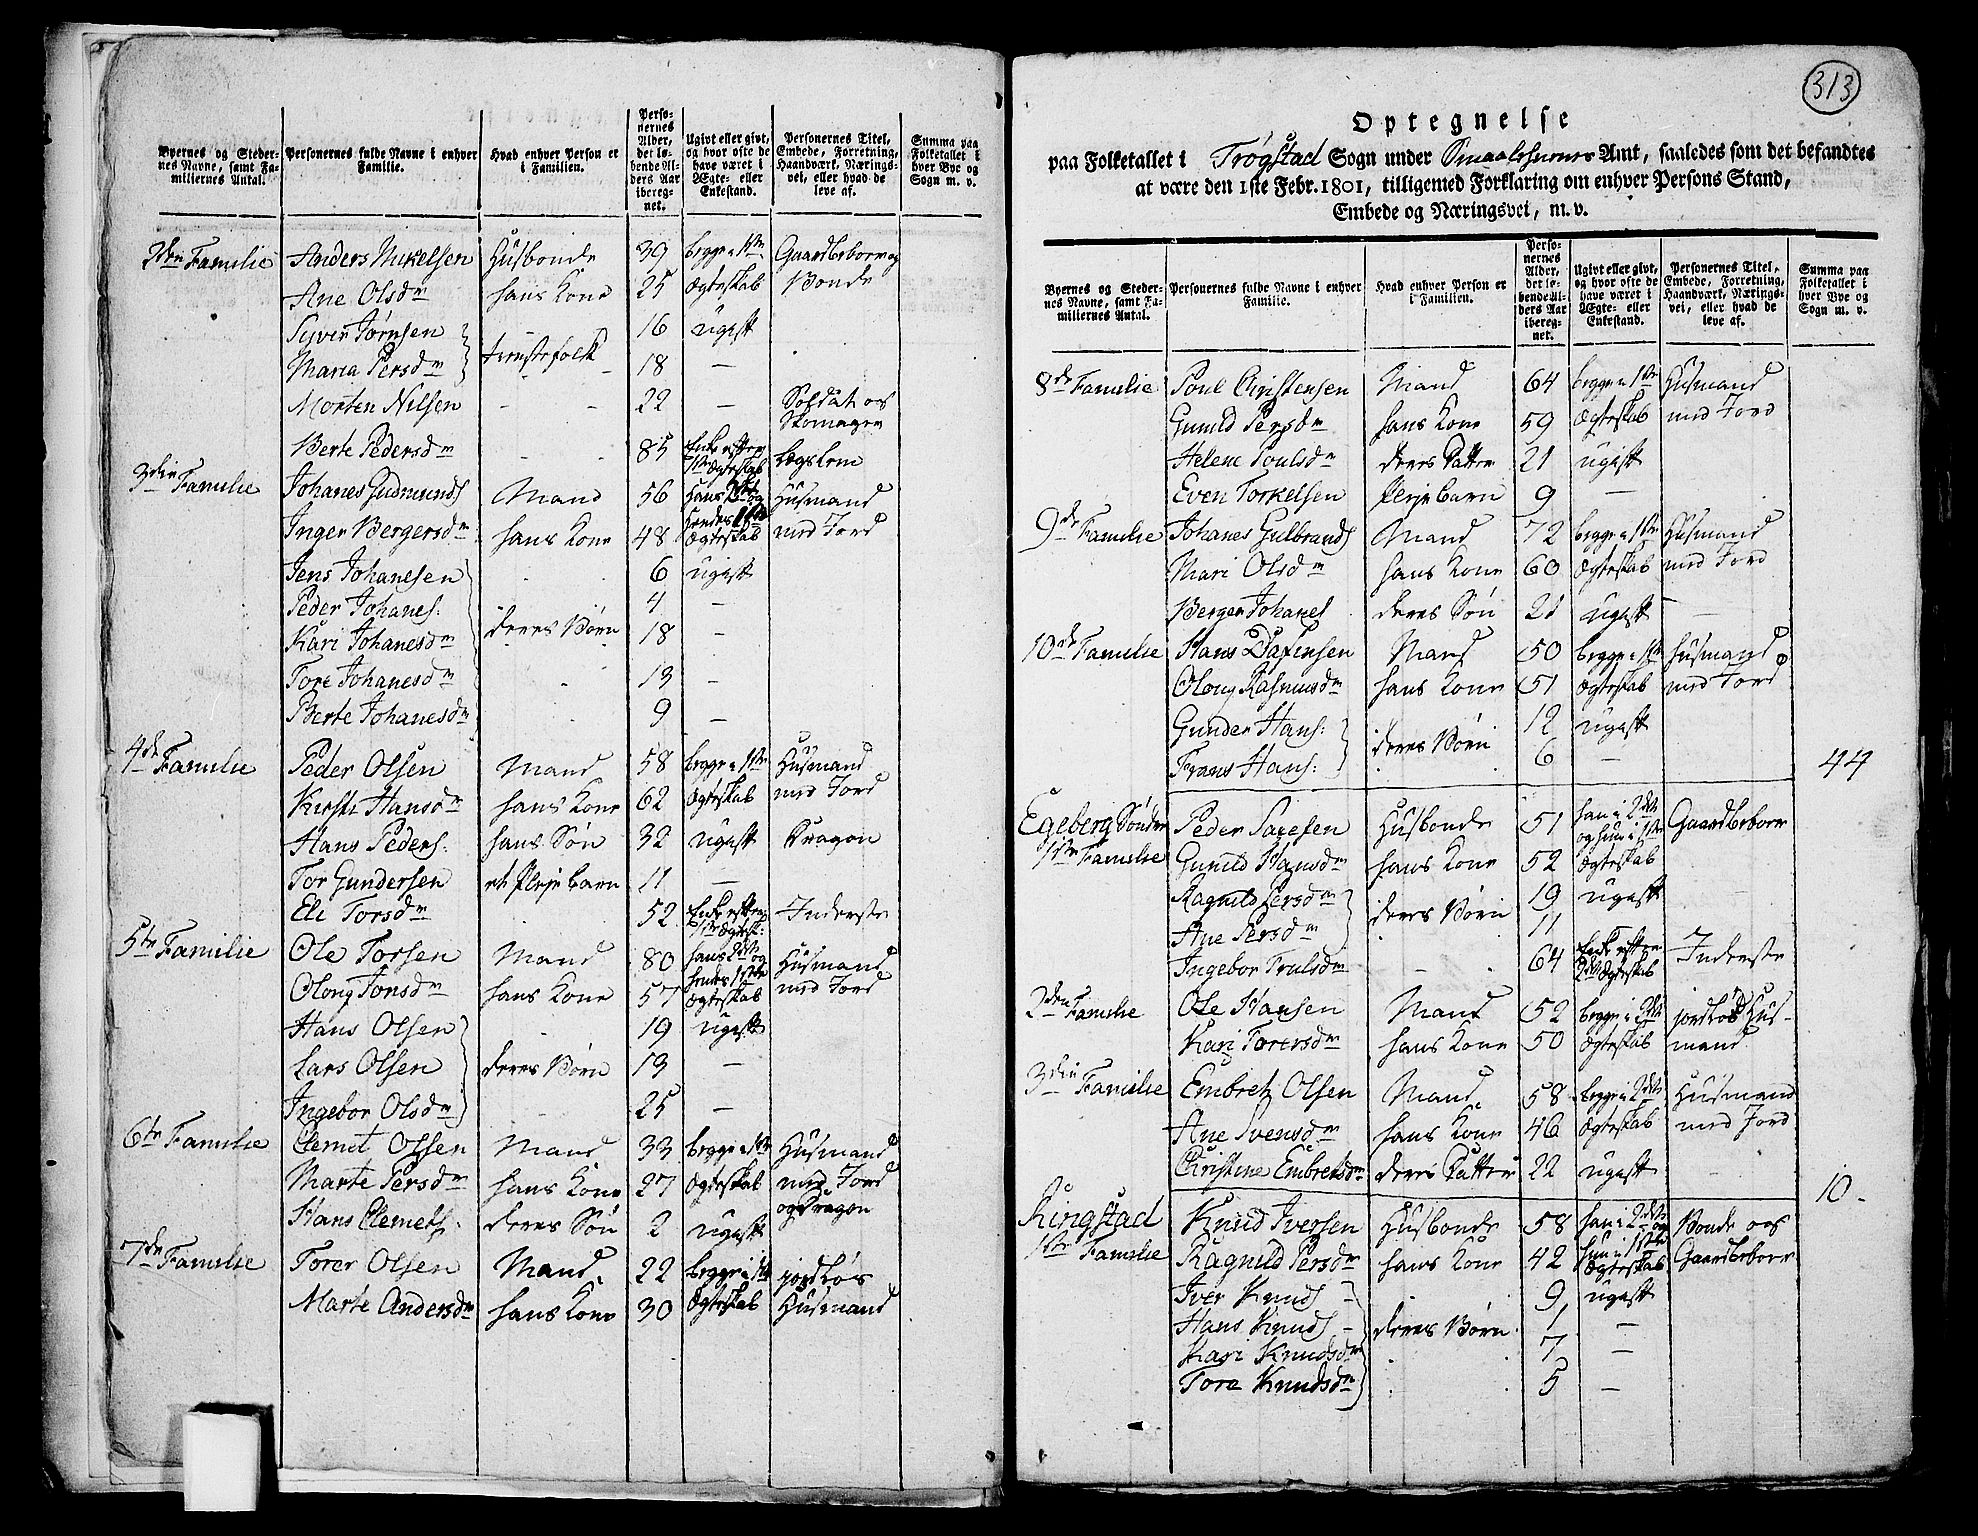 Byernes og Steder-
nes Navne, samt Fa-
miliernes Antal.
Personernes fulde Navne i enhver
Familie.
Hvad enhver Person er
i Familien.
Perso-
nernes
Alder,
det lø-
bende Al-
ders Aar
ibereg-
net.
Ugivt eller givt,
og hvor ofte de
have været i
Ægte- eller
Enkestand.
Personernes Titel,
Embede, Forretning,
Haandværk, Nærings-
vei, eller hvad de
leve af.
Summa paa
Folketallet i
hver Bye og
Sogn m. v.
2den Familie Anders Mikelsen Husbonde 39 begge i 1ste Gaardbeboer og
Ane Olsdr hans Kone 25 Ægteskab Bonde
Syver Jørnsen 16 ugift
Maria Persdr tienestefolk 18 —
Morten Nilsen - - 22 — Soldat og
Skomager
Berte Pedersdr - - 85 Enke efter Lægslem
1ste Ægteskab
3die Familie Johanes Gudmunds Mand 56 Hans 2det og Husmand
Hendes 1ste
Inger Bergersdr hans Kone 48 Ægteskab med Jord
Jens Johanesen 6 ugift
Peder Johanes: 4 —
Kari Johanesdr deres Børn 18 —
Tore Johanesdr 13 —
Berte Johanesdr 9 —
4de Familie Peder Olsen Mand 58 begge i 1ste Husmand
Kirsti Hansdr hans Kone 62 Ægteskab med Jord
Hans Peders: hans Søn 32 ugift Dragon
Tor Gundersen et Pleje barn 11 —
Eli Torsdr 52 Enke efter Inderste
1ste Ægtesk:
5te Familie Ole Torsen Mand 80 hans 2det og Husmand
hendes 1ste
Olong Tonsdr hans Kone 57 Ægteskab med Jord
Hans Olsen 19 ugift
Lars Olsen deres Børn 13 —
Ingebor Olsdr 25 —
6te Familie Clemet Olsen Mand 33 begge i 1ste Husmand
Marte Persdr hans Kone 27 Ægteskab med Jord
og Dragon
Hans Clemets. deres Søn 2 ugift
7de Familie Torer Olsen Mand 22 begge i 1ste jordløs
Marte Andersdr hans Kone 30 Ægteskab Husmand
313
Optegnelse
paa Folketallet i Trøgstad Sogn under Smaalehnenes Amt, saaledes som det befandtes
at være den 1ste Febr. 1801, tilligemed Forklaring om enhver Persons Stand,
Embede og Næringsvei, m. v.
Byernes og Steder-
nes Navne, samt Fa-
miliernes Antal.
Personernes fulde Navne i enhver
Familie.
Hvad enhver Person er
i Familien.
Perso-
nernes
Alder,
det lø-
bende Al-
ders Aar
ibereg-
net.
Ugivt eller givt,
og hvor ofte de
have været i
Ægte- eller
Enkestand.
Personernes Titel,
Embede, Forretning,
Haandværk, Nærings-
vei, eller hvad de
leve af.
Summa paa
Folketallet i
hver Bye og
Sogn m. v.
8de Familie Poul Christensen Mand 64 begge i 1ste Husmand
Gunild Persdr hans Kone 59 Ægteskab med Jord
Helene Poulsdr deres Datter 21 ugift
Even Torkelsen Pleje barn 9 —
9de Familie Johanes Gulbrands Mand 72 begge i 1ste Husmand
Mari Olsdr hans Kone 60 Ægteskab med Jord
Berger Johanes deres Søn 21 ugift —
10de Familie Hans Dafinsen Mand 50 begge i 1ste husmand
Olong Rasmusdr hans Kone 51 Ægteskab med Jord
Gunder Hans: 12 ugift
deres Børn
Frans Hans: 6 — 44
Egeberg Sønder Peder Paresen Husbonde 51 han i 2det Gaardbeboer
og hun i 1ste
1ste Familie Gunild Hansdr hans Kone 52 Ægteskab
Ragnild Persdr 19 ugift
deres Børn
Ane Persdr 11
Ingebor Trulsdr - 64 Enke efter Inderste
2det Ægteskab
2den Familie Ole Hansen Mand 52 begge i 2det jordløs Hus-
Kari Torersdr hans Kone 50 Ægteskab mand
3die Familie Embret Olsen Mand 58 begge i 2det Husmand
Ane Svensdr hans Kone 46 Ægteskab med Jord
Christine Embretsdr deres Datter 22 ugift 10-
Ringstad Knud Iversen Husbonde 58 han i 2det og Bonde og
1ste Familie Ragnild Persdr hans Kone 42 hun i 1ste Gaardbeboer
Ægteskab
Iver Knuds 9 ugift
Hans Knuds - deres Børn 1 —
Kari Knudsdr 7 —
Tora Knudsdr 5 —